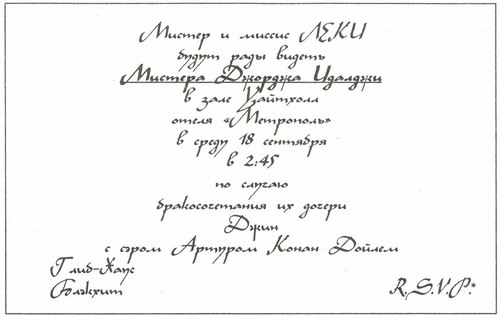 Мистер и миссис ЛЕКИ
будут рады видеть
Мистера Джорджа Идалджи
в зале Уайтхолл
отеля «Метрополь»
в среду 18 сентября
в 2:45
по случаю
бракосочетания их дочери
Джин
с сэром Артуром Конан Дойлем
Глиб-Хаус
Блэкхит
R.S.V.P.*